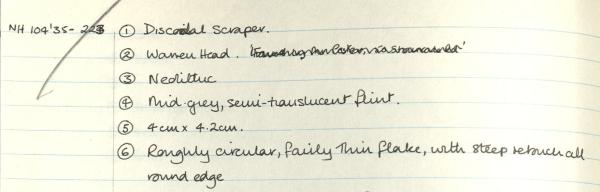 NH 104'35- 223 ① Discoidal Scraper.
② Warren Head.
③ Neolithic
④ Mid-grey, semi-translucent flint.
⑤ 4cm x 4.2cm.
⑥ Roughly circular, fairly thin flake, with steep retouch all
round edge